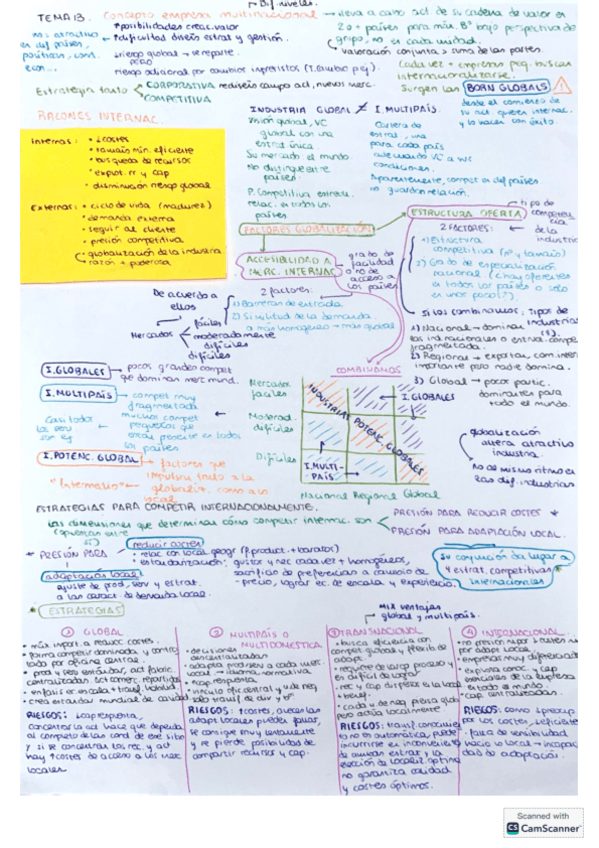 → Dif. niveles.
TEMA 13. Concepto empresa multinacional → lleva a cabo act. de su cadena de valor en
2 o + países para mím. Bº bajo perspectiva de
grupo, no en cada unidad.
↳ valoración conjunta > suma de las partes.
↑ posibilidades creac. valor
↑ dificultad diseño estrat y gestión.
en dif países,
↓ riesgo global → se reparte.
PERO
riesgo adicional por cambios imprevistos (T. Cambio p.ej.).
Cada vez + empresas peq. buscan
internacionalizarse.
Estrategia tanto CORPORATIVA rediseño campo act, nuevos merc.
COMPETITIVA
Surgen las BORN GLOBALS
desde el comienzo de
su act. quieren internac.
y lo hacen con éxito.
RAZONES INTERNAC.
Internas:
• ↓ costes
• tamaño mín. eficiente
• búsqueda de recursos
• explot. rr y cap
• disminución riesgo global
Externas:
• ciclo de vida (madurez)
• demanda externa
• seguir al cliente
• presión competitiva
• globalización de la industria
↳ razón + poderosa
INDUSTRIA GLOBAL ≠ I. MULTIPAÍS:
Visión global, VC
global con una
estrat única
Su mercado: el mundo
No distingue entre
países.
P. Competitiva estrat.
relac. en todos los
países
Cartera de
estrat., una
para cada país
adecuando VC a sus
condiciones.
Aparentemente, compet en dif países
no guardan relación.
FACTORES GLOBALIZACIÓN
ESTRUCTURA OFERTA → tipo de
competencia
de la
industria
2 FACTORES:
1) Estructura
competitiva (nº y tamaño)
2) Grado de especialización
nacional (¿hay oferentes
en todos los países o solo
en unos pocos?).
Si los combinamos, tipos de
industrias
1) Nacional → dominan
las ind nacionales o entran. compet
fragmentada.
2) Regional → export, com inter
importante pero nadie domina.
3) Global → pocos partic.
dominantes para
todo el mundo.
ACCESIBILIDAD A
MERC. INTERNAC
grado de
facilidad
o no de
acceso a
los países
2 factores:
1) Barreras de entrada.
2) Similitud de la demanda.
a más homogéneo → más global
De acuerdo a
ellos
Mercados
fáciles
moderadamente
difíciles
difíciles
COMBINAMOS
I. GLOBALES → pocos grandes compet
que dominan merc mund.
I. MULTIPAÍS → compet muy
fragmentada
muchos compet
pequeños que
están presente en todos
los países
Casi todos
I. POTENC. GLOBAL → factores que
impulsan tanto a la
globaliz. como a lo
local
"Intermedio" ←
Mercados
fáciles
Moderad.
difíciles
Difíciles
INDUSTRIAS POTENC. GLOBALES
I. GLOBALES
I. MULTI-
PAÍS
Nacional Regional Global
globalización
altera atractivo
industria.
No al mismo ritmo en
las dif. industrias
ESTRATEGIAS PARA COMPETIR INTERNACIONALMENTE.
Las dimensiones que determinan cómo competir internac. son
(opuestas entre
sí)
PRESIÓN PARA REDUCIR COSTES *
PRESIÓN PARA ADAPTACIÓN LOCAL.
* PRESIÓN PARA
reducir costes
• relac con local. geogr (p. product. + baratos)
• estandarización: gustos y nec cada vez + homogéneos,
sacrificio de preferencias a cambio de
- precio, lograr ec. de escala y experiencia.
adaptación local
ajuste de prod, serv y estrat.
a las caract. de demanda local.
Su conjunción da lugar a
4 estrat. competitivas
internacionales
* ESTRATEGIAS
① GLOBAL
• más import. a reducc costes.
• forma competir dominada y contro
lada por oficina central.
• prod y serv estándar, act fabric
centralizadas.
• enfasis ec escala
• crea estándar mundial de calidad
RIESGOS:
concentrar la act hace que dependa
al completo de las cond de ese sitio
y si se concentran los rec. y act
hay ↑ costes de acceso a los merc
locales.
② MULTIPAÍS O
MULTIDOMÉSTICA
• decisiones
descentralizadas
• adapta prod/serv a cada merc
local → idioma, normativa
• ↑ cap. respuesta.
• vínculo of. central y u de neg
RIESGOS: ↑ costes, a veces las
adapt locales pueden fallar,
se consigue muy lentamente
y se pierde posibilidad de
compartir recursos y cap.
Mix ventajas
global y multipaís.
③ TRANSNACIONAL
• busca eficiencia con
compet globales y flexib de
adapt.
• requiere de largo proceso y
es difícil de lograr
• rec y cap dispersos a la local
+ benef.
• cada u de neg piensa global
pero actúa localmente
RIESGOS: transf. conocimien
to no es automática, puede
incurrirse en inconvenientes
de ambas estrat y la
elección de localiz. óptima
no garantiza calidad
y costes óptimos.
④ INTERNACIONAL.
por adapt local.
• empresas muy diferenciadas
• explota conoc. y cap
esenciales de la empresa
en todo el mundo
• cap. centralizadas.
RIESGOS: como ↓ preocup
por los costes, ↓ eficiente
• falta de sensibilidad
hacia lo local → incapac
idad de adaptación.
Scanned with
CS CamScanner